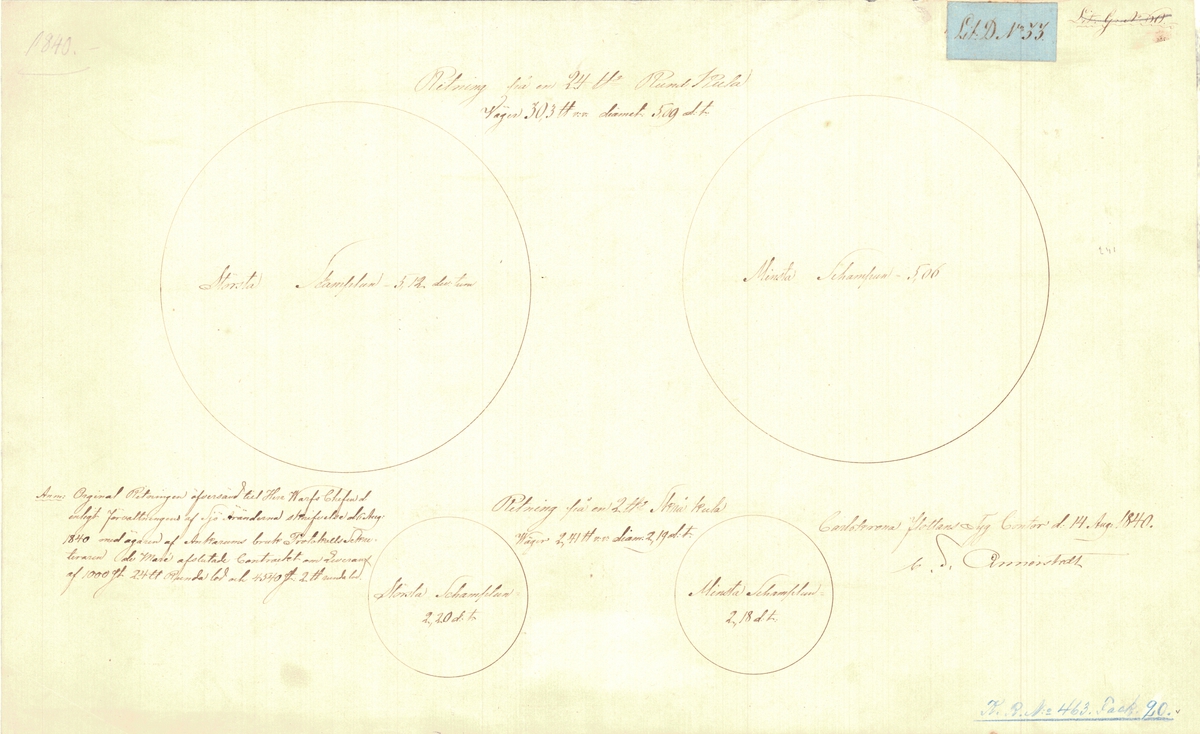 1840.
Lt. D. No 33.
Ritning på en 24 ℔s Rund Kula
Väger 30,3 ℔ v.v. diamet. 5,09 d.t.
Största Schamplun - 5,12 dec. tum
Minsta Schamplun - 5,06
Anm. Orginal Ritningen öfversänd til Herr Warfs Chefen d
enligt Förvaltningens af Sjö Ärendena skrifvelse d. 6 Aug.
1840 med ägaren af Ankarsrums bruk Protokolls Sekre-
teraren de Maré afslutade Contract om Leverans
af 1000 st. 24 ℔ Runda lod och 4340 st. 2 ℔
Ritning på en 2 ℔s Skrå kula
Wäger 2,41 ℔ v.v. diam. 2,19 d.t.
Största Schamplun
2,20 d.t.
Minsta Schamplun
2,18 d.t.
Carlskrona Flottans Tyg Contor d. 14 Aug. 1840.
Annerstedt
K. R. No 463. Pack 20.